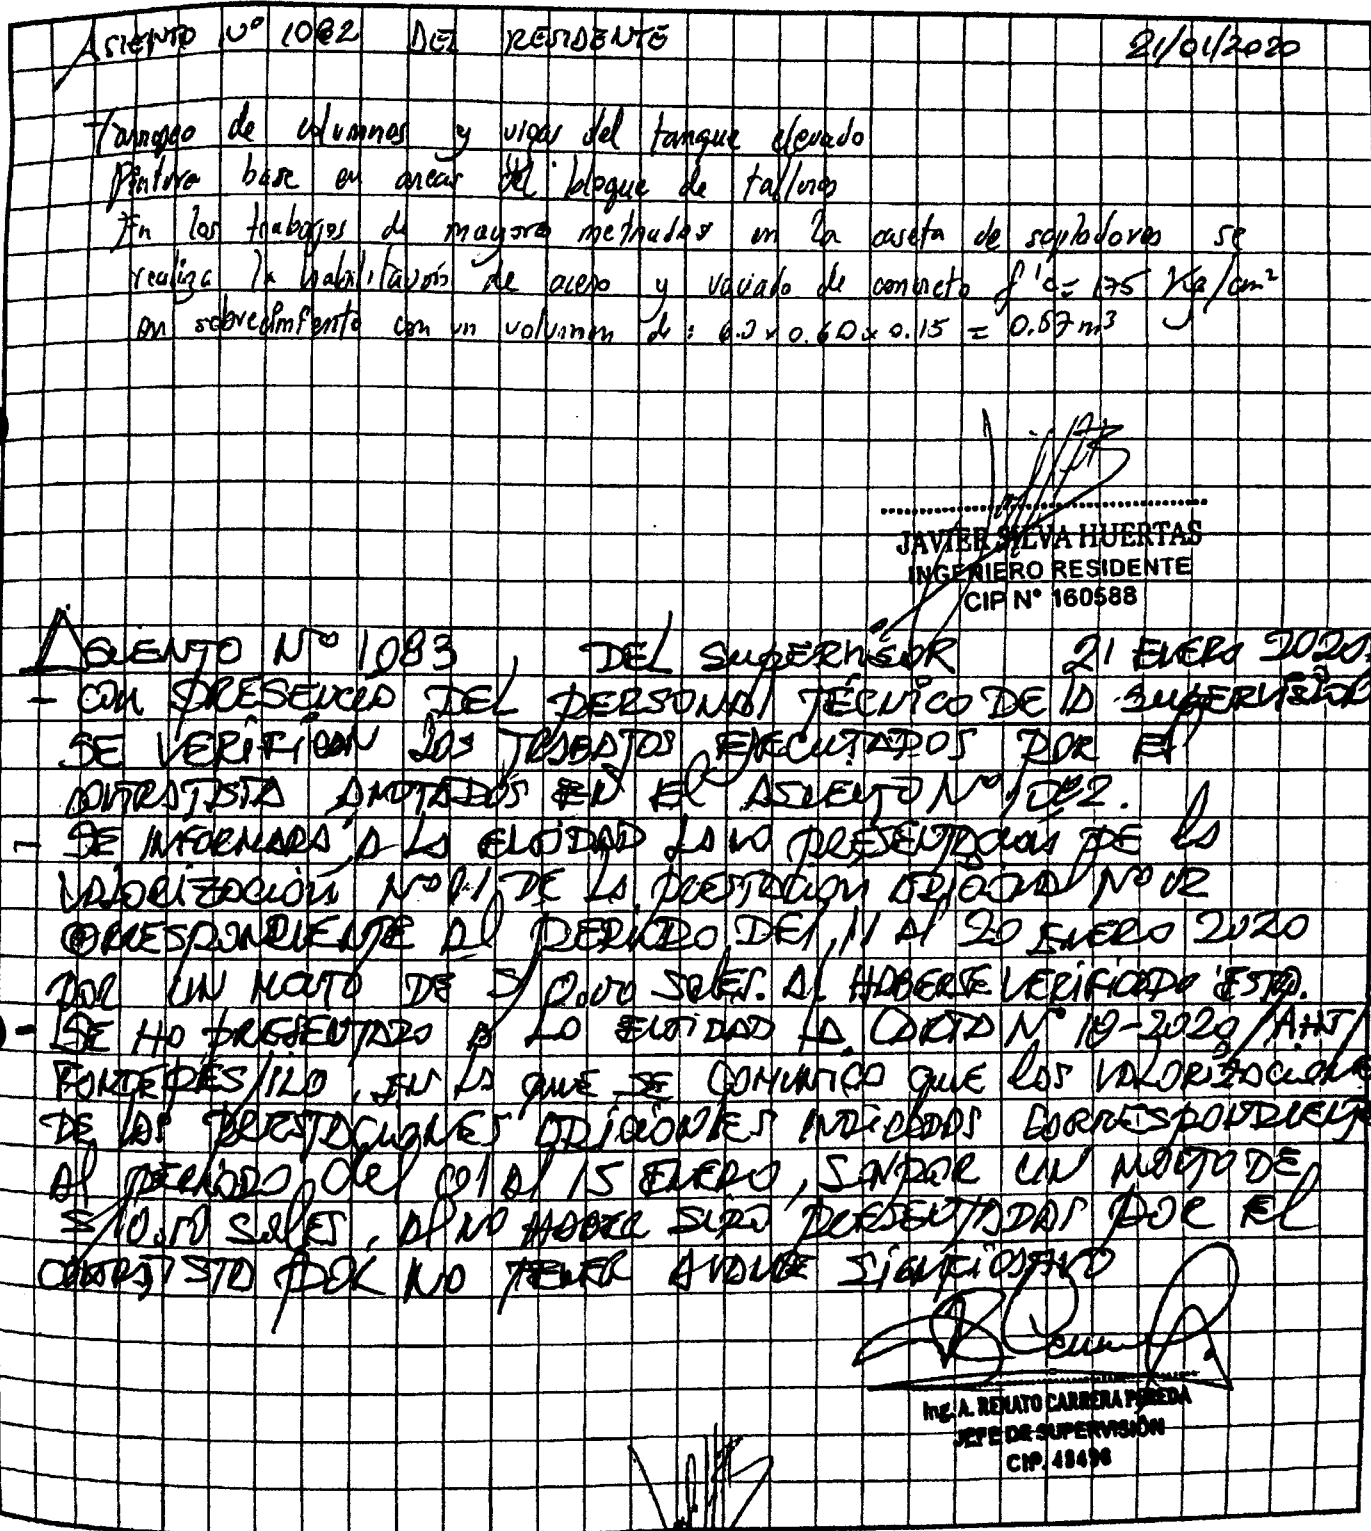 ASIENTO Nº 1082 DEL RESIDENTE 21/01/2020
Tarrajeo de columnas y vigas del tanque elevado
Pintura base en areas del bloque de talleres
En los trabajos de mayores metrados en la caseta de sopladores se
realiza la habilitación de acero y vaciado de concreto f'c= 175 Kg/cm²
en sobrecimiento con un volumen de : x 0.60 x 0.15 = 0.57 m³
JAVIER SILVA HUERTAS
INGENIERO RESIDENTE
CIP N° 160588
ASIENTO Nº 1083 DEL SUPERVISOR 21 ENERO 2020.
- CON PRESENCIA DEL PERSONAL TÉCNICO DE LA SUPERVISIÓN
SE VERIFICAN LOS TRABAJOS EJECUTADOS POR EL
CONTRATISTA ANOTADOS EN EL ASIENTO Nº 1082.
- SE INFORMARÁ A LA ENTIDAD LA NO PRESENTACIÓN DE LA
VALORIZACIÓN Nº 01 DE LA PRESTACIÓN ADICIONAL Nº 02
CORRESPONDIENTE AL PERIODO DEL 11 AL 20 ENERO 2020
POR UN MONTO DE S/ 0.00 SOLES. AL HABERSE VERIFICADO ESTO.
- SE HA PRESENTADO A LA ENTIDAD LA CARTA Nº 18-2020/AHJ/
FONDEPES/ILO, EN LA QUE SE COMUNICÓ QUE LAS VALORIZACIONES
DE LAS PRESTACIONES ADICIONALES INDICADAS CORRESPONDIENTE
AL PERIODO DEL 01 AL 15 ENERO, SON POR UN MONTO DE
S/ 0.00 SOLES, AL NO HABER SIDO PRESENTADAS POR EL
CONTRATISTA POR NO TENER AVANCE SIGNIFICATIVO
Ing. A. RENATO CARRERA PEREDA
JEFE DE SUPERVISIÓN
CIP. 48496